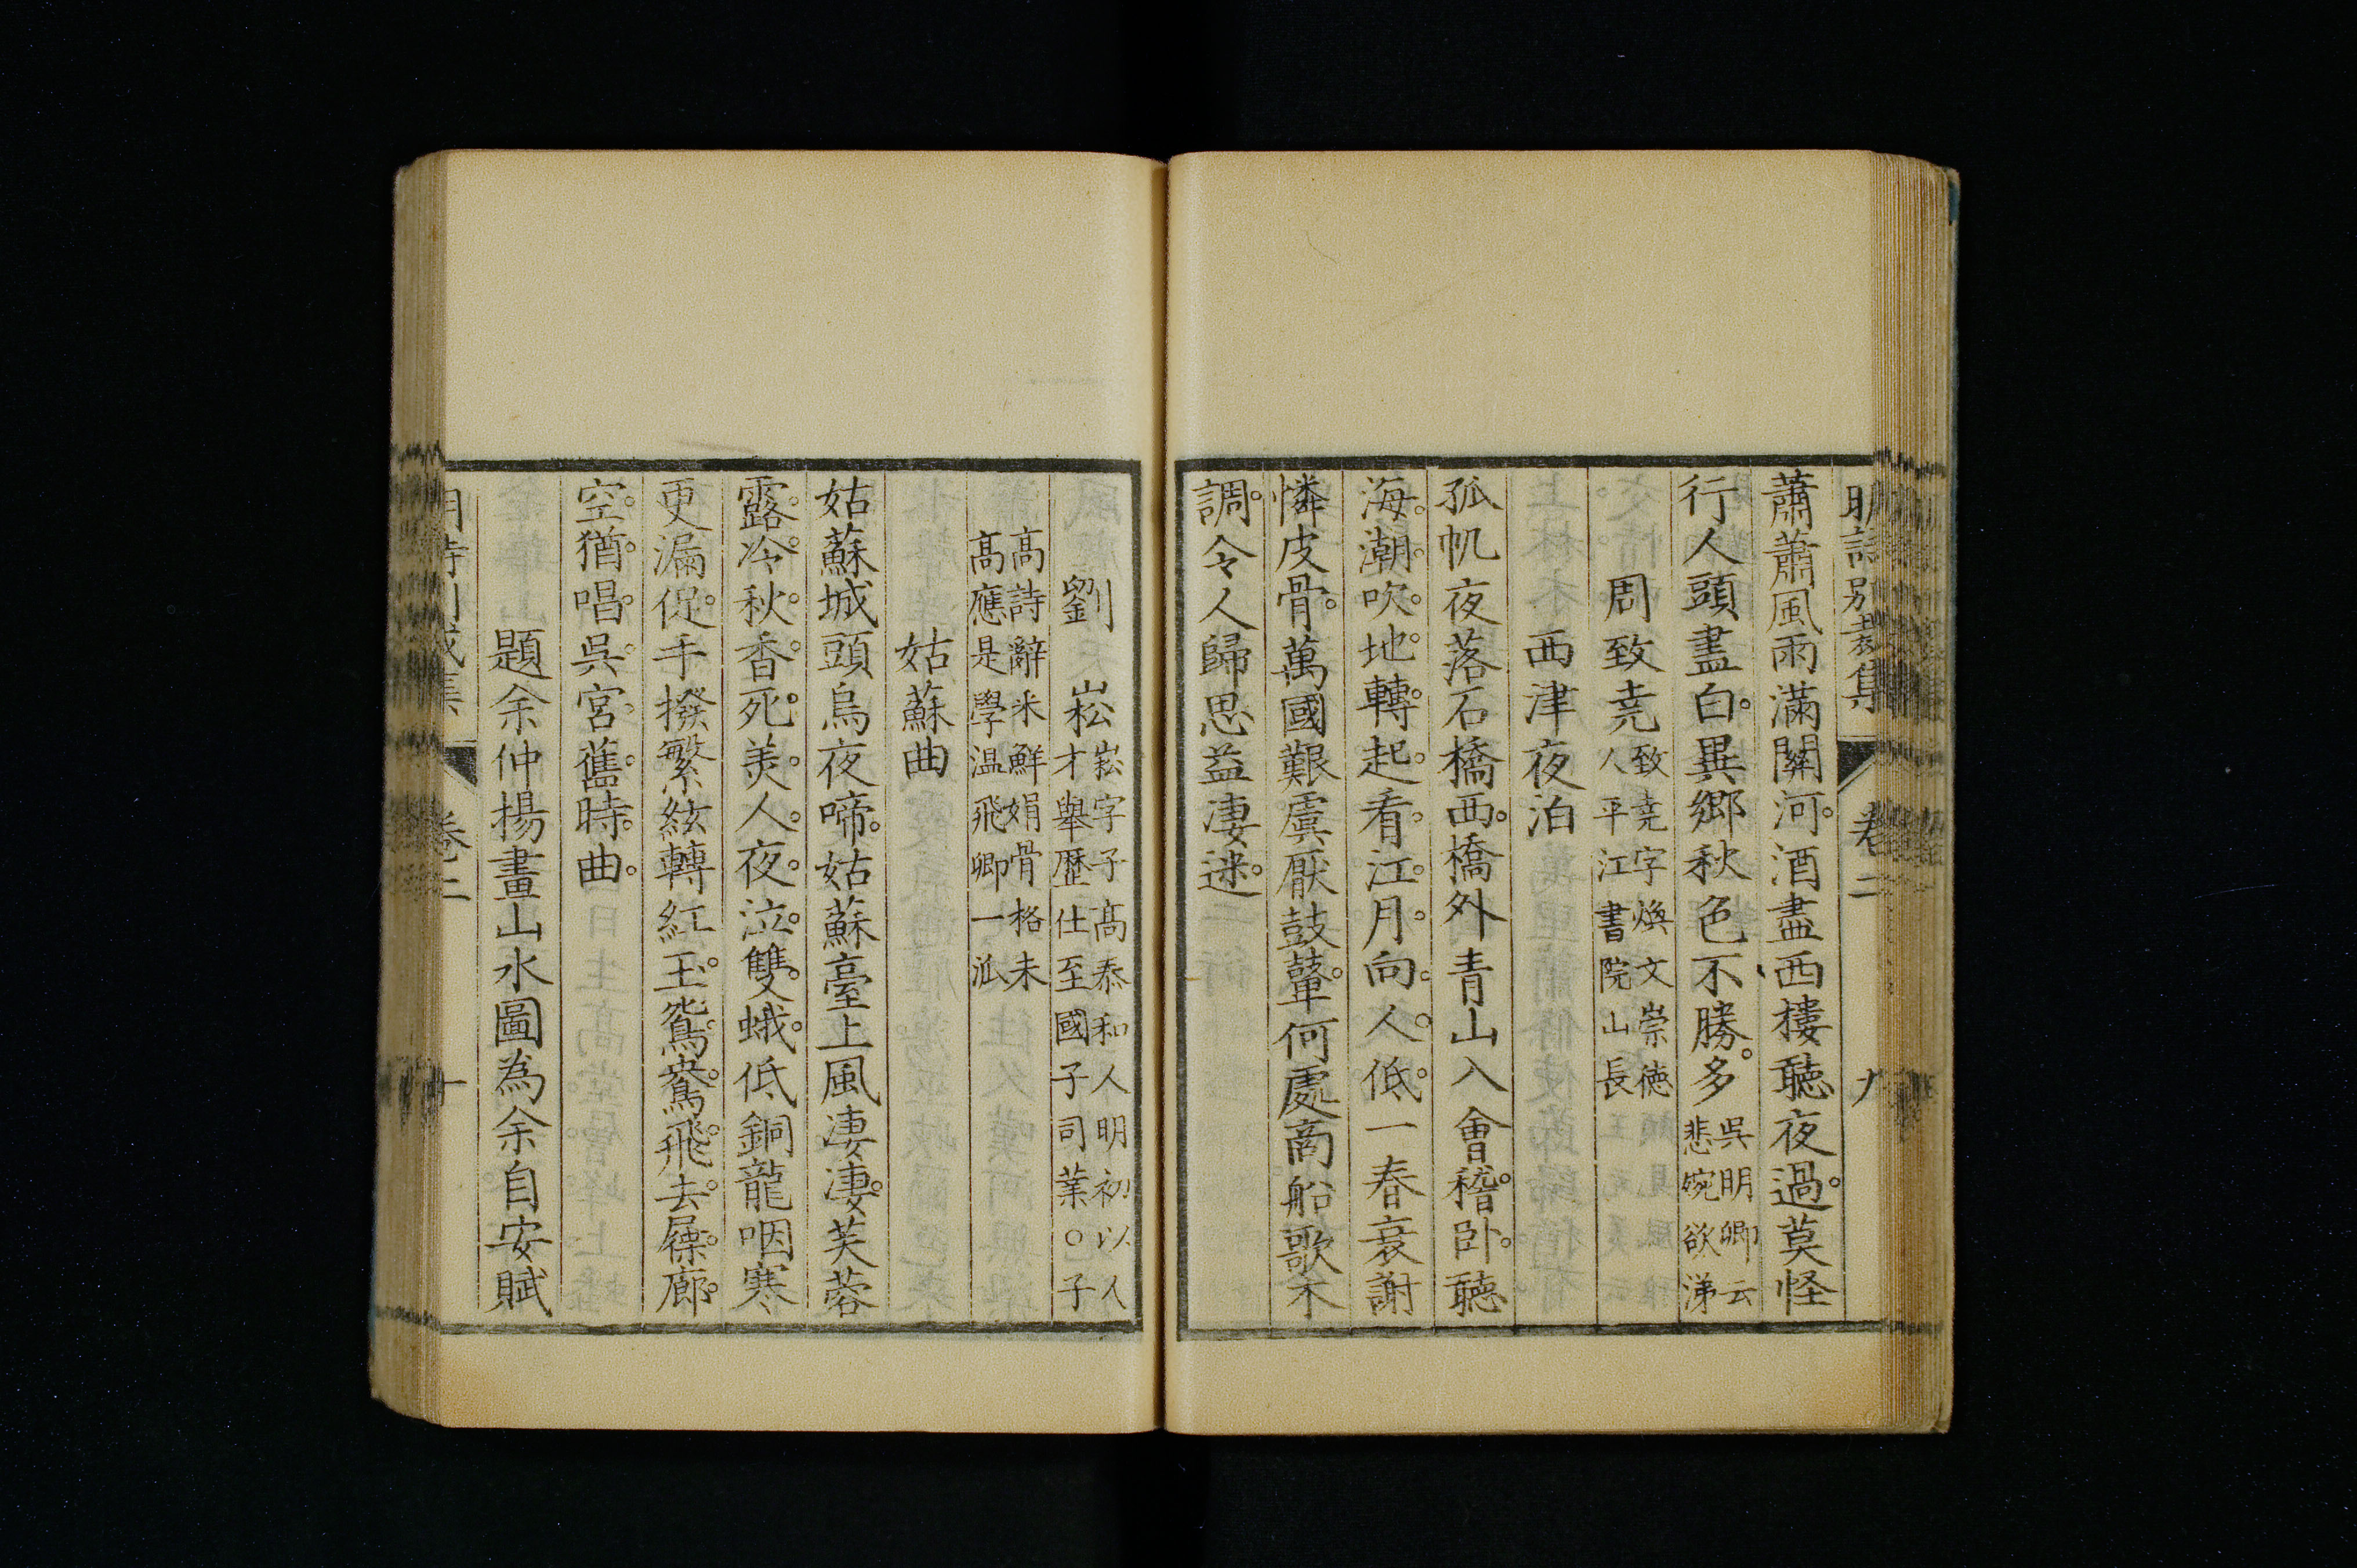 蕭蕭風雨滿關河酒盡西樓聽夜過莫怪
行人頭盡白異鄉秋色不勝多吳明卿云
悲婉欲涕
周致堯致堯字煥文崇德
人平江書院山長
西津夜泊
孤帆夜落石橋西橋外青山入會稽卧聽
海潮吹地轉起看江月向人低一春衰謝
憐皮骨萬國艱虞厭鼓鼙何處商船歌禾
調令人歸思益凄迷
劉崧崧字子高泰和人明初以人
才舉歷仕至國子司業○子
高詩辭采鮮娟骨格未
高應是學温飛卿一派
姑蘇曲
姑蘇城頭烏夜啼姑蘇臺上風凄凄芙蓉
露冷秋香死美人夜泣雙蛾低銅龍咽寒
更漏促手撥繁絃轉紅玉鴛鴦飛去屧廊
空猶唱吳宮舊時曲
題余仲揚畫山水圖為余自安賦